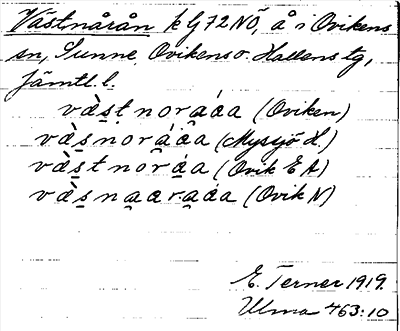 Västnårån k G72NÖ, å i Ovikens
sn, Sunne, Ovikens o. Hallens tg,
Jämtl. l.
vàṣt noraáa (Oviken)
vàṣnoráa̭a (Myssjö H.)
vàṣt noráa (Ovik E A)
vàṣnaaraáa (Ovik N)
E. Terner 1919.
Ulma 463:10